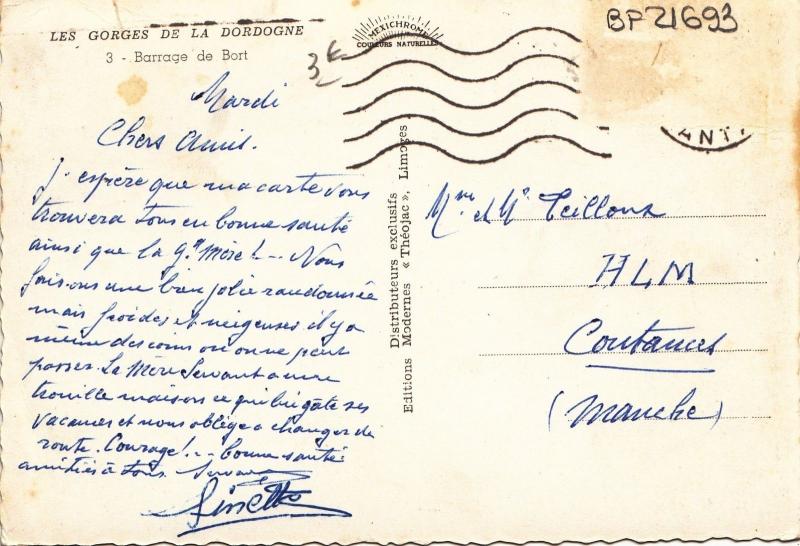 LES GORGES DE LA DORDOGNE
3 - Barrage de Bort
MEXICHROME
COULEURS NATURELLES
BP 21693
3€
ANT
Mardi
Chers Amis.
J'espère que ma carte vous
trouvera tous en bonne santé
ainsi que la Gd Mère! -- Nous
faisons une bien jolie randonnée
mais froides et neigeuses il y a
même des coins ou on ne peut
passer. La Mère Servant a une
trouille maison ce qui lui gâte ses
vacances et nous oblige a changer de
route. Courage! -- bonne santé
amitiés à tous. Servant
Ginette
Editions Modernes « Théojac », Limoges
Distributeurs exclusifs
Mme et Mr Teilloux
HLM
Coutances
(Manche)